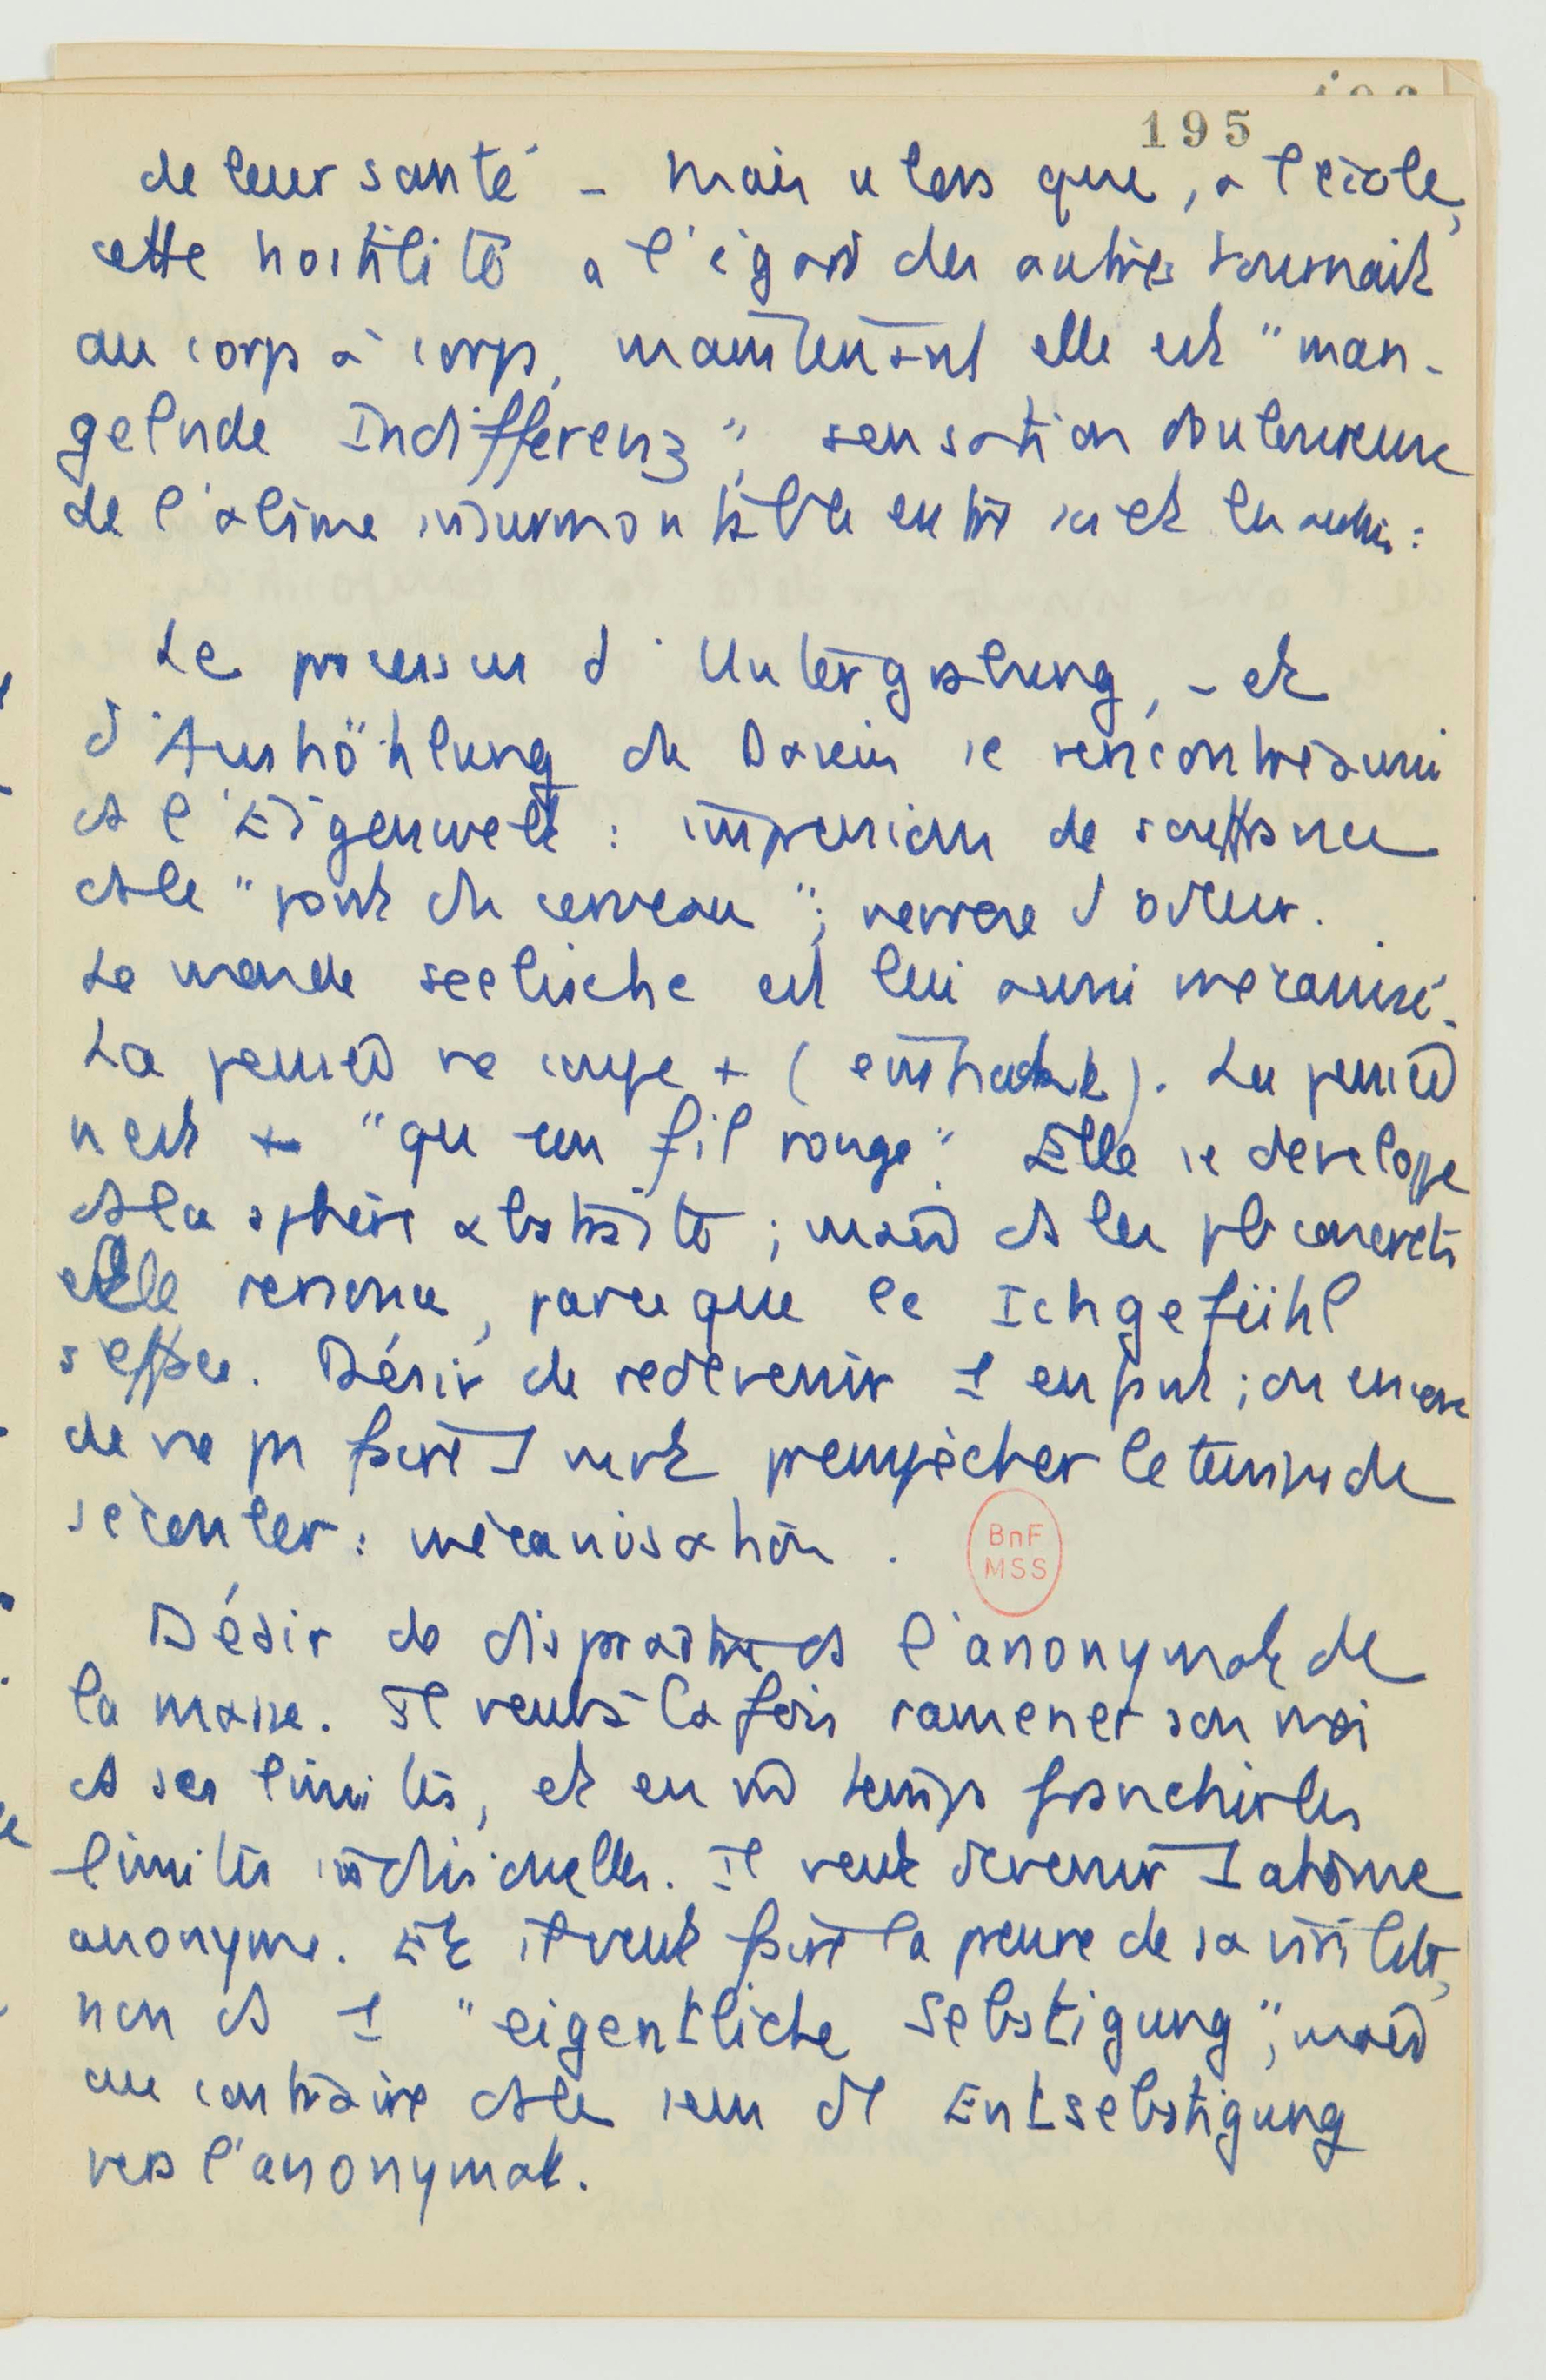 195
de leur santé - Mais alors que, à l'école,
cette hostilité à l'égard des autres tournait
au corps à corps, maintenant elle est "man-
gelnde Indifferenz", sensation douloureuse
de l'abîme insurmontable entre soi et les autres :
Le processus d'Untergrabung, - et
d'Aushöhlung du Dasein se rencontre aussi
ds l'Eigenwelt : impression de souffrance
ds le "pont du cerveau" ; d'odeur.
Le monde seelische est lui aussi mécanisé.
La pensée ne + ( ). La pensée
n'est + "qu'un fil rouge". Elle se développe
ds la sphère abstraite ; mais ds les pb concrets
elle renonce, parce que le Ichgefühl
s'efface. Désir de redevenir 1 enfant ; ou encore
de ne pas faire 1 vent pr empêcher le temps de
s'écouler : mécanisation.
BnF
MSS
Désir de disparaître ds l'anonymat de
la masse. Il veut à la fois ramener son moi
ds ses limites, et en m temps franchir les
limites individuelles. Il veut devenir 1 atome
anonyme. Et il veut faire la preuve de sa virilité,
non ds 1 "eigentliche Selbstigung", mais
au contraire ds le sens d'1 Entselbstigung
vers l'anonymat.